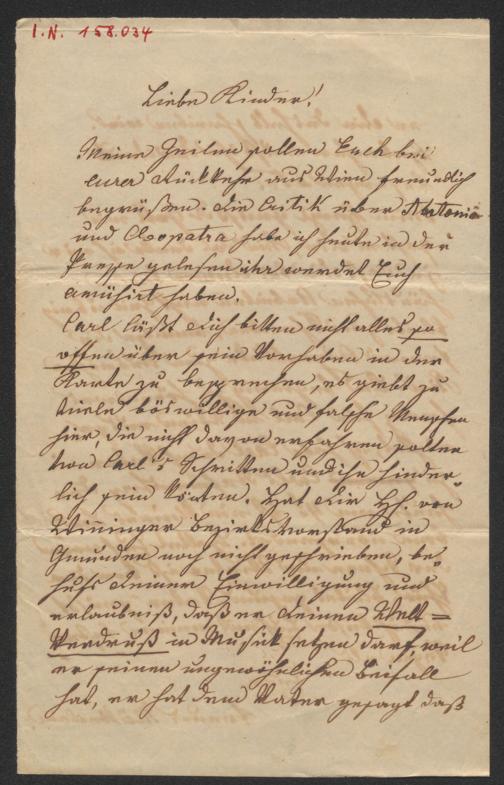 I.N. 158.034
Liebe Kinder!
Meine Zeilen sollen Euch bei
eurer Rückkehr aus Wien freundlich
begrüßen. Die Critik über Antonius
und Cleopatra habe ich heute in der
Presse gelesen ihr werdet Euch
amüsirt haben.
Carl läßt Dich bitten nicht alles so
offen über sein Vorhaben in der
Karte zu besprechen, es giebt zu
viele böswillige und falsche Menschen
hier, die nicht davon erfahren sollten
von Carl's Schritten und ihm hinder-
lich sein könten. Hat Dir H. von
Wininger Bezirksvorstand in
Gmunden noch nicht geschrieben, be-
hufs Deiner Einwilligung und
erlaubniß, daß er Deinen Welt=
Verdruß in Musick setzen darf, weil
er seinen ungewöhnlichen Beifall
hat, er hat dem Vater gesagt daß